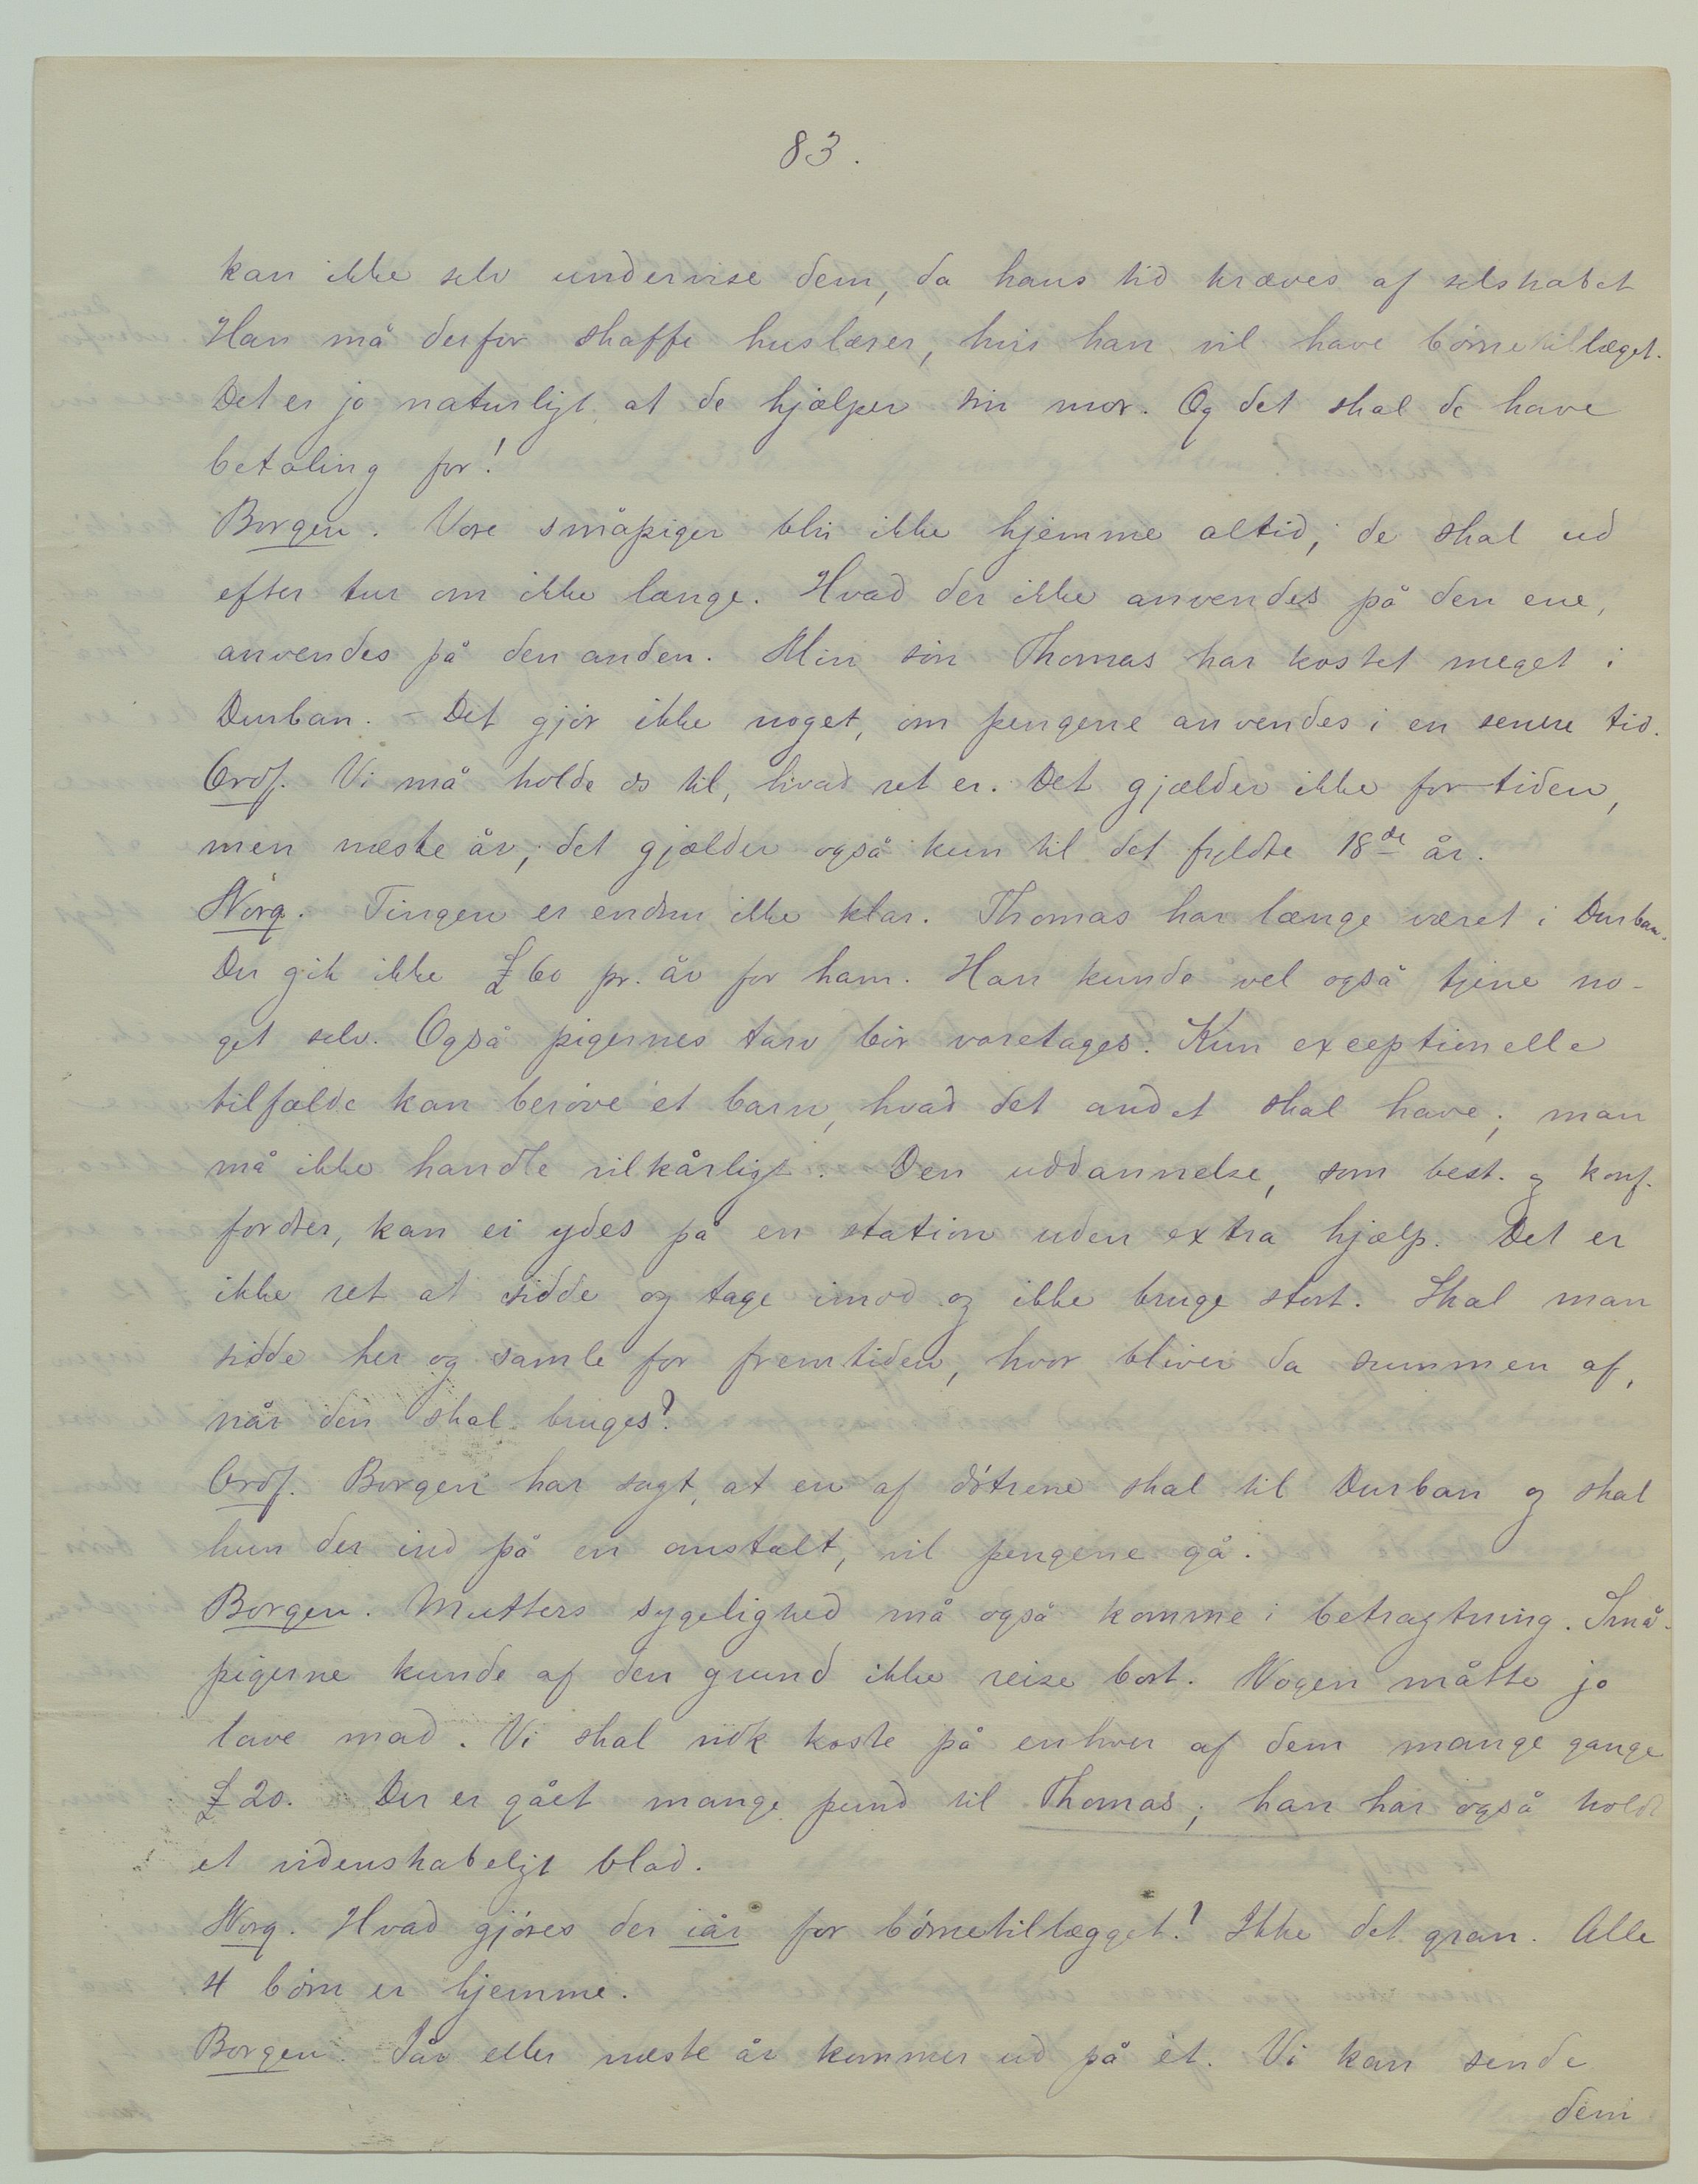 83.
kan ikke selv undervise dem, da hans tid kræves af selskabet
Han må derfor skaffe huslærer, hvis han vil have børnetillæget.
Det er jo naturligt at de hjælper sin mor. Og det skal de have
betaling for!
Borgen. Vore småpiger blir ikke hjemme altid; de skal ud
efter tur om ikke længe. Hvad der ikke anvendes på den ene,
anvendes på den anden. Min sön Thomas har kostet meget i
Durban. - Det gjör ikke noget, om pengene anvendes i en senere tid.
Ordf. Vi må holde os til, hvad ret er. Det gjælder ikke for tiden,
men næste år; det gjælder også kun til det fyldte 18de år.
Norg. Tingen er endnu ikke klar. Thomas har længe været i Durban.
Der gik ikke £ 60 pr. år for ham. Han kunde vel også tjene no-
get selv. Også pigernes tarv bör varetages. Kun exceptionelle
tilfælde kan beröve et barn, hvad det andet skal have; man
må ikke handle vilkårligt. Den uddannelse, som best. og konf.
fordrer, kan ei ydes på en station uden extra hjælp. Det er
ikke ret at sidde og tage imod og ikke bruge stort. Skal man
sidde her og samle for fremtiden, hvor bliver da summen af,
når den skal bruges?
Ordf. Borgen har sagt, at en af dötrene skal til Durban og skal
hun der ind på en anstalt, vil pengene gå.
Borgen. Mutters sygelighed må også komme i betragtning. Små-
pigerne kunde af den grund ikke reise bort. Nogen måtte jo
lave mad. Vi skal nok koste på enhver af dem mange gange
£ 20. Der er gået mange pund til Thomas; han har også holdt
et videnskabeligt blad.
Norg. Hvad gjöres der iår for börnetillægget? Ikke det gran. Alle
4 börn er hjemme.
Borgen. Iår eller næste år kommer ud på ét. Vi kan sende
dem